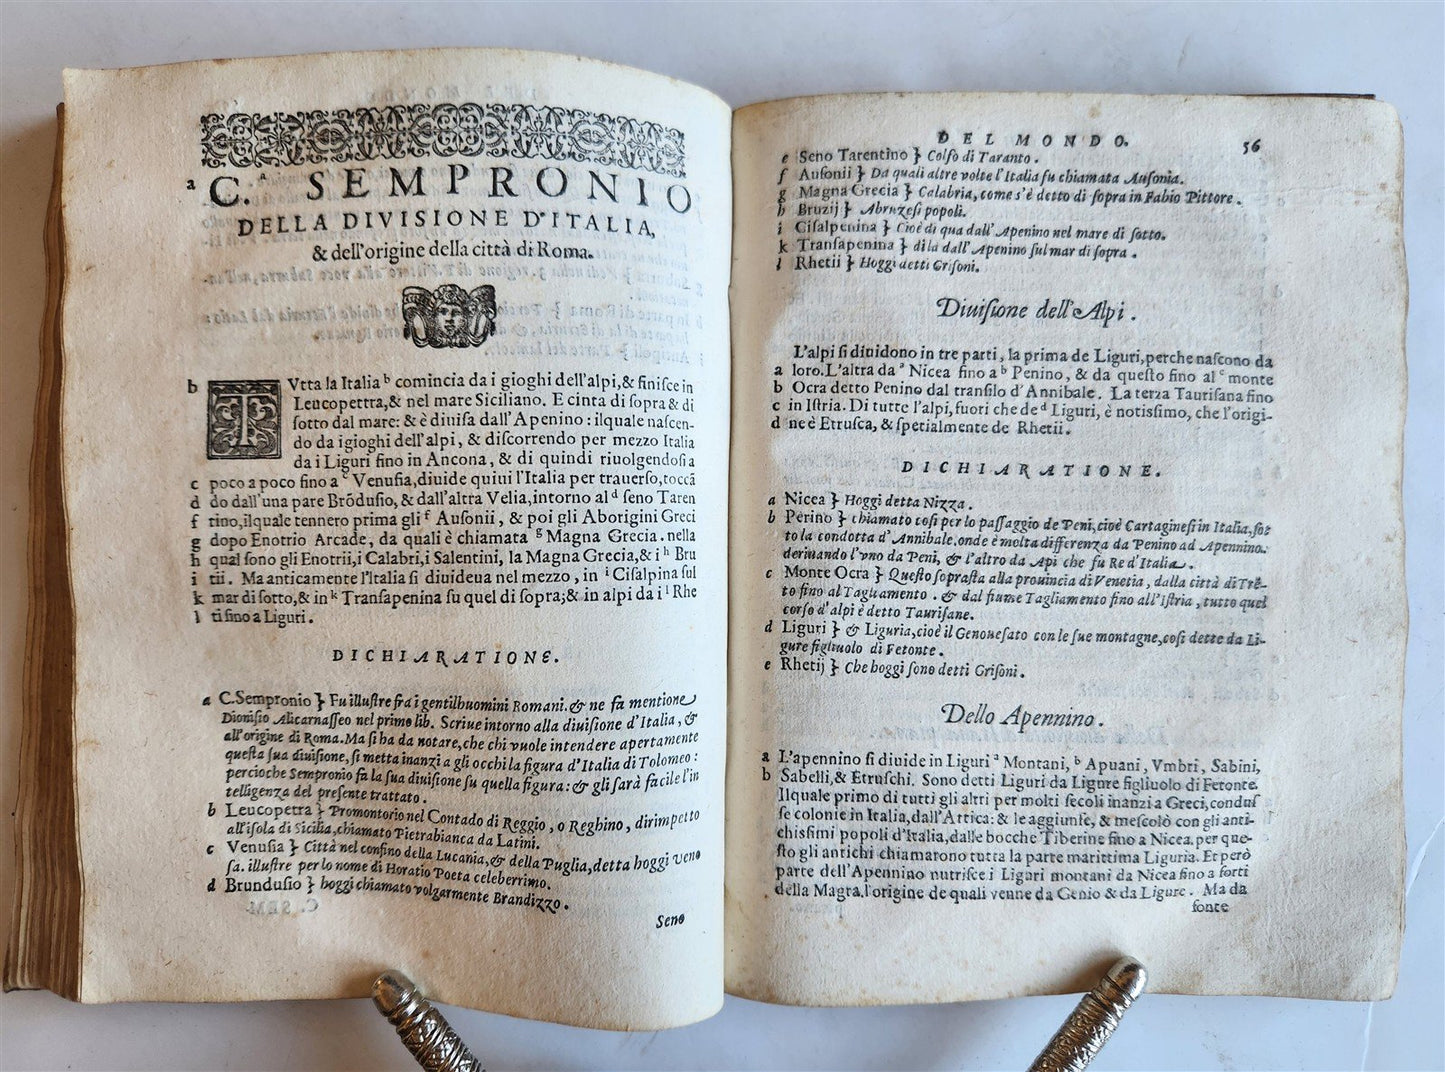 a C. SEMPRONIO
DELLA DIVISIONE D'ITALIA,
& dell'origine della città di Roma.
b TVtta la Italia b comincia da i gioghi dell'alpi, & finisce in
Leucopettra, & nel mare Siciliano. E cinta di sopra & di
sotto dal mare: & è diuisa dall'Apenino: ilquale nascen-
do da i gioghi dell'alpi, & discorrendo per mezzo Italia
da i Liguri fino in Ancona, & di quindi riuolgendosi a
c poco a poco fino a c Venusia, diuide quiui l'Italia per trauerso, toccā
d do dall'una pare Brōdusio, & dall'altra Velia, intorno al d seno Taren
f tino, ilquale tennero prima gli f Ausonii, & poi gli Aborigini Greci
g dopo Enotrio Arcade, da quali è chiamata g Magna Grecia. nella
h qual sono gli Enotrii, i Calabri, i Salentini, la Magna Grecia, & i h Bru
i tii. Ma anticamente l'Italia si diuideua nel mezzo, in i Cisalpina sul
k mar di sotto, & in k Transapenina su quel di sopra; & in alpi da i l Rhe
l ti fino a Liguri.
DICHIARATIONE.
a C. Sempronio } Fu illustre fra i gentilhuomini Romani. & ne fa mentione
Dionisio Alicarnasseo nel primo lib. Scriue intorno alla diuisione d'Italia, &
all'origine di Roma. Ma si ha da notare, che chi vuole intendere apertamente
questa sua diuisione, si metta inanzi a gli occhi la figura d'Italia di Tolomeo:
percioche Sempronio fa la sua diuisione su quella figura: & gli sarà facile l'in
telligenza del presente trattato.
b Leucopetra } Promontorio nel Contado di Reggio, o Reghino, dirimpetto
all'isola di Sicilia, chiamato Pietrabianca da Latini.
c Venusia } Città nel confino della Lucania, & della Puglia, detta hoggi Veno
sa. illustre per lo nome di Horatio Poeta celeberrimo.
d Brundusio } hoggi chiamato volgarmente Brandizzo.
Seno
DEL MONDO. 56
e Seno Tarentino } Colfo di Taranto.
f Ausonii } Da quali altre volte l'Italia fu chiamata Ausonia.
g Magna Grecia } Calabria, come s'è detto di sopra in Fabio Pittore.
h Bruzij } Abruzesi popoli.
i Cisalpenina } Cioè di qua dall'Apenino nel mare di sotto.
k Transapenina } di la dall'Apenino sul mar di sopra.
l Rhetii } Hoggi detti Grisoni.
Diuisione dell'Alpi.
L'alpi si diuidono in tre parti, la prima de Liguri, perche nascono da
a loro. L'altra da a Nicea fino a b Penino, & da questo fino al c monte
b Ocra detto Penino dal transito d'Annibale. La terza Taurisana fino
c in Istria. Di tutte l'alpi, fuori che de d Liguri, è notissimo, che l'origi-
d ne è Etrusca, & spetialmente de Rhetii.
DICHIARATIONE.
a Nicea } Hoggi detta Nizza.
b Perino } chiamato cosi per lo passaggio de Peni, cioè Cartaginesi in Italia, sot
to la condotta d'Annibale. onde è molta differenza da Penino ad Apennino.
deriuando l'vno da Peni, & l'altro da Api che fu Re d'Italia.
c Monte Ocra } Questo soprasta alla prouincia di Venetia, dalla città di Trē-
to fino al Tagliamento. & dal fiume Tagliamento fino all'Istria, tutto quel
corso d'alpi è detto Taurisane.
d Liguri } & Liguria, cioè il Genouesato con le sue montagne, cosi dette da Li-
gure figliuolo di Fetonte.
e Rhetij } Che hoggi sono detti Grisoni.
Dello Apennino.
a L'apennino si diuide in Liguri a Montani, b Apuani, Vmbri, Sabini,
b Sabelli, & Etruschi. Sono detti Liguri da Ligure figliuolo di Fetonte.
Ilquale primo di tutti gli altri per molti secoli inanzi a Greci, condus
se colonie in Italia, dall'Attica: & le aggiunse, & mescolò con gli anti-
chissimi popoli d'Italia, dalle bocche Tiberine fino a Nicea. per que-
sto gli antichi chiamarono tutta la parte marittima Liguria. Et però
parte dell'Apennino nutrisce i Liguri montani da Nicea fino a forti
della Magra. l'origine de quali venne da Genio & da Ligure. Ma da
fonte